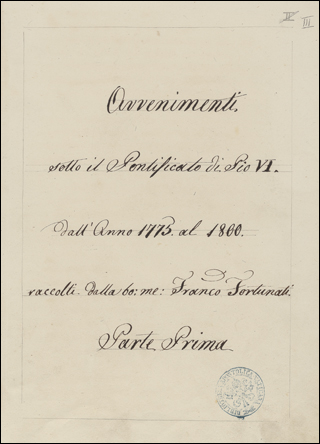 IV III
Avvenimenti.
sotto il Pontificato di Pio VI.
dall'Anno 1775. al 1800.
raccolti dalla bo: me: Franco Fortunati.
Parte Prima